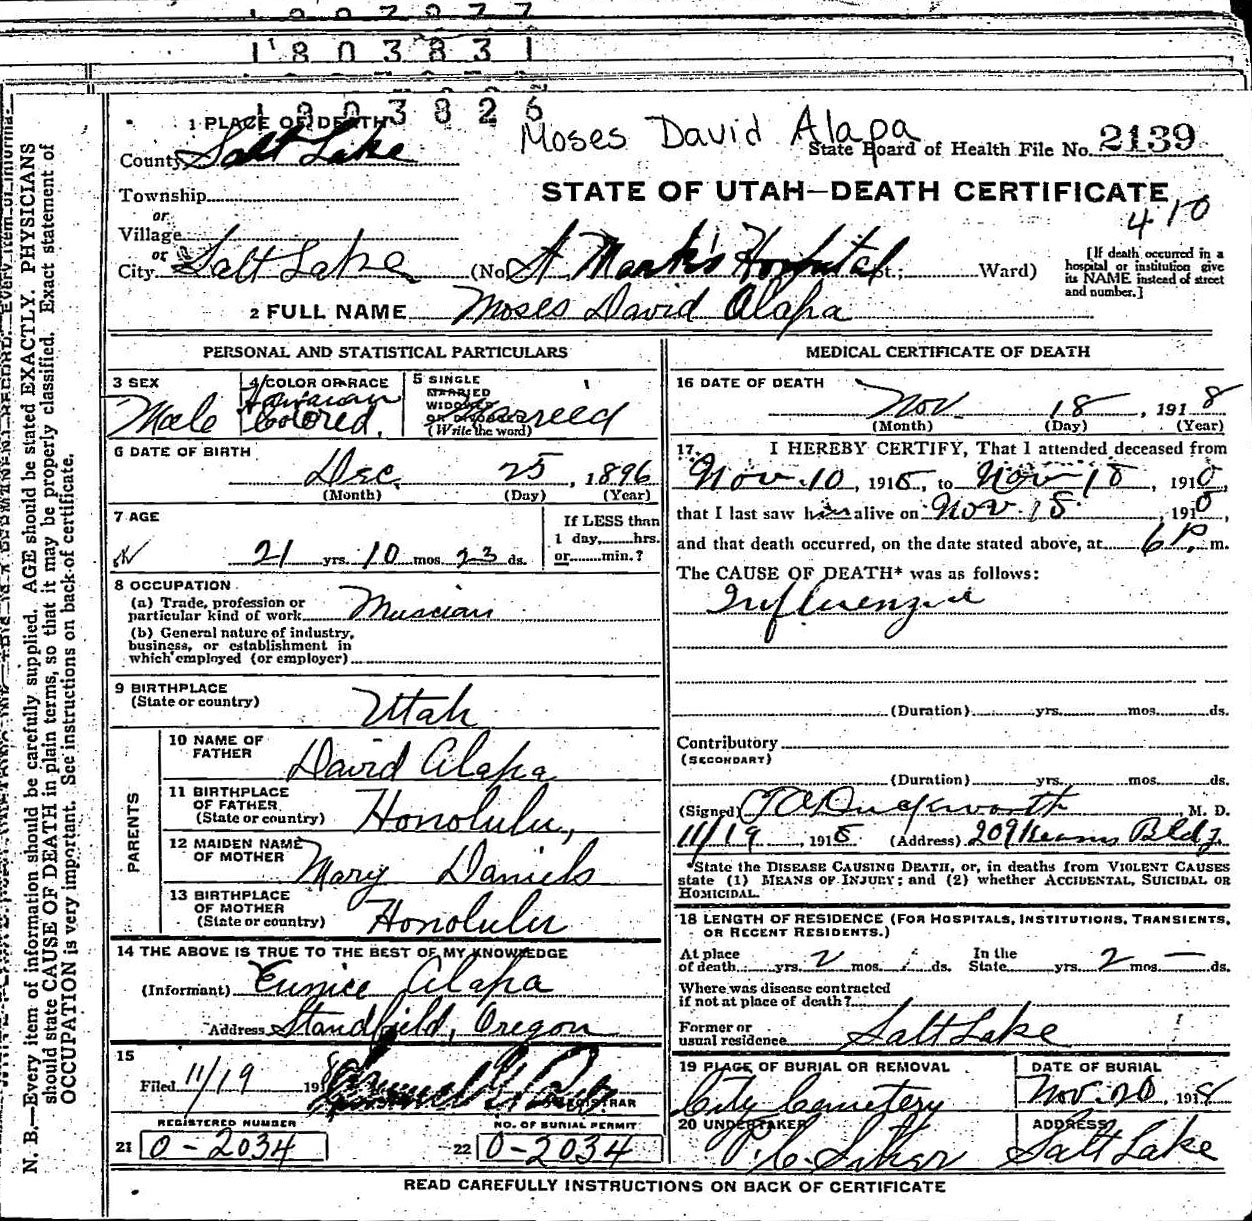 1803831
1803826
1 PLACE OF DEATH
Moses David Alapa
County Salt Lake
State Board of Health File No. 2139
Township
STATE OF UTAH—DEATH CERTIFICATE
410
or
Village
or
City Salt Lake (No. St Mark's Hospital St.; Ward)
[If death occurred in a
hospital or institution give
its NAME instead of street
and number.]
2 FULL NAME Moses David Alapa
PERSONAL AND STATISTICAL PARTICULARS
3 SEX
Male
4 COLOR OR RACE
Hawaiian
Colored.
5 SINGLE
MARRIED
WIDOWED
OR DIVORCED
(Write the word)
Married
6 DATE OF BIRTH
Dec. 25, 1896
(Month) (Day) (Year)
7 AGE
21 yrs. 10 mos. 23 ds.
If LESS than
1 day, hrs.
or min.?
8 OCCUPATION
(a) Trade, profession or
particular kind of work Muscian
(b) General nature of industry,
business, or establishment in
which employed (or employer)
9 BIRTHPLACE
(State or country)
Utah
PARENTS
10 NAME OF
FATHER
David Alapa
11 BIRTHPLACE
OF FATHER
(State or country)
Honolulu,
12 MAIDEN NAME
OF MOTHER
Mary Daniels
13 BIRTHPLACE
OF MOTHER
(State or country)
Honolulu
14 THE ABOVE IS TRUE TO THE BEST OF MY KNOWLEDGE
(Informant) Eunice Alapa
Address Standfield, Oregon
15
Filed 11/19 191
REGISTRAR
REGISTERED NUMBER
21 0-2034
NO. OF BURIAL PERMIT
22 0-2034
MEDICAL CERTIFICATE OF DEATH
16 DATE OF DEATH
Nov 18, 1918
(Month) (Day) (Year)
17 I HEREBY CERTIFY, That I attended deceased from
Nov. 10, 1918, to Nov 18, 1918,
that I last saw him alive on Nov. 18, 1918,
and that death occurred, on the date stated above, at 6 P. m.
The CAUSE OF DEATH* was as follows:
Influenza
(Duration) yrs. mos. ds.
Contributory
(SECONDARY)
(Duration) yrs. mos. ds.
(Signed) Duckworth M. D.
11/19 1918 (Address) 209 Kearns Bldg.
*State the DISEASE CAUSING DEATH, or, in deaths from VIOLENT CAUSES
state (1) MEANS OF INJURY; and (2) whether ACCIDENTAL, SUICIDAL OR
HOMICIDAL.
18 LENGTH OF RESIDENCE (FOR HOSPITALS, INSTITUTIONS, TRANSIENTS,
OR RECENT RESIDENTS.)
At place
of death yrs. 2 mos. ds.
In the
State yrs. 2 mos. — ds.
Where was disease contracted
if not at place of death?
Former or
usual residence Salt Lake
19 PLACE OF BURIAL OR REMOVAL
City Cemetery
DATE OF BURIAL
Nov. 20, 1918
20 UNDERTAKER
ADDRESS
Salt Lake
READ CAREFULLY INSTRUCTIONS ON BACK OF CERTIFICATE
N. B.—Every item of information should be carefully supplied. AGE should be stated EXACTLY. PHYSICIANS
should state CAUSE OF DEATH in plain terms, so that it may be properly classified. Exact statement of
OCCUPATION is very important. See instructions on back of certificate.